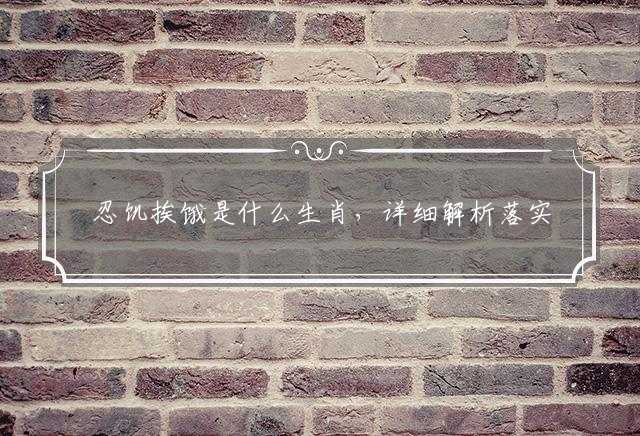 忍饥挨饿是什么生肖，详细解析落实